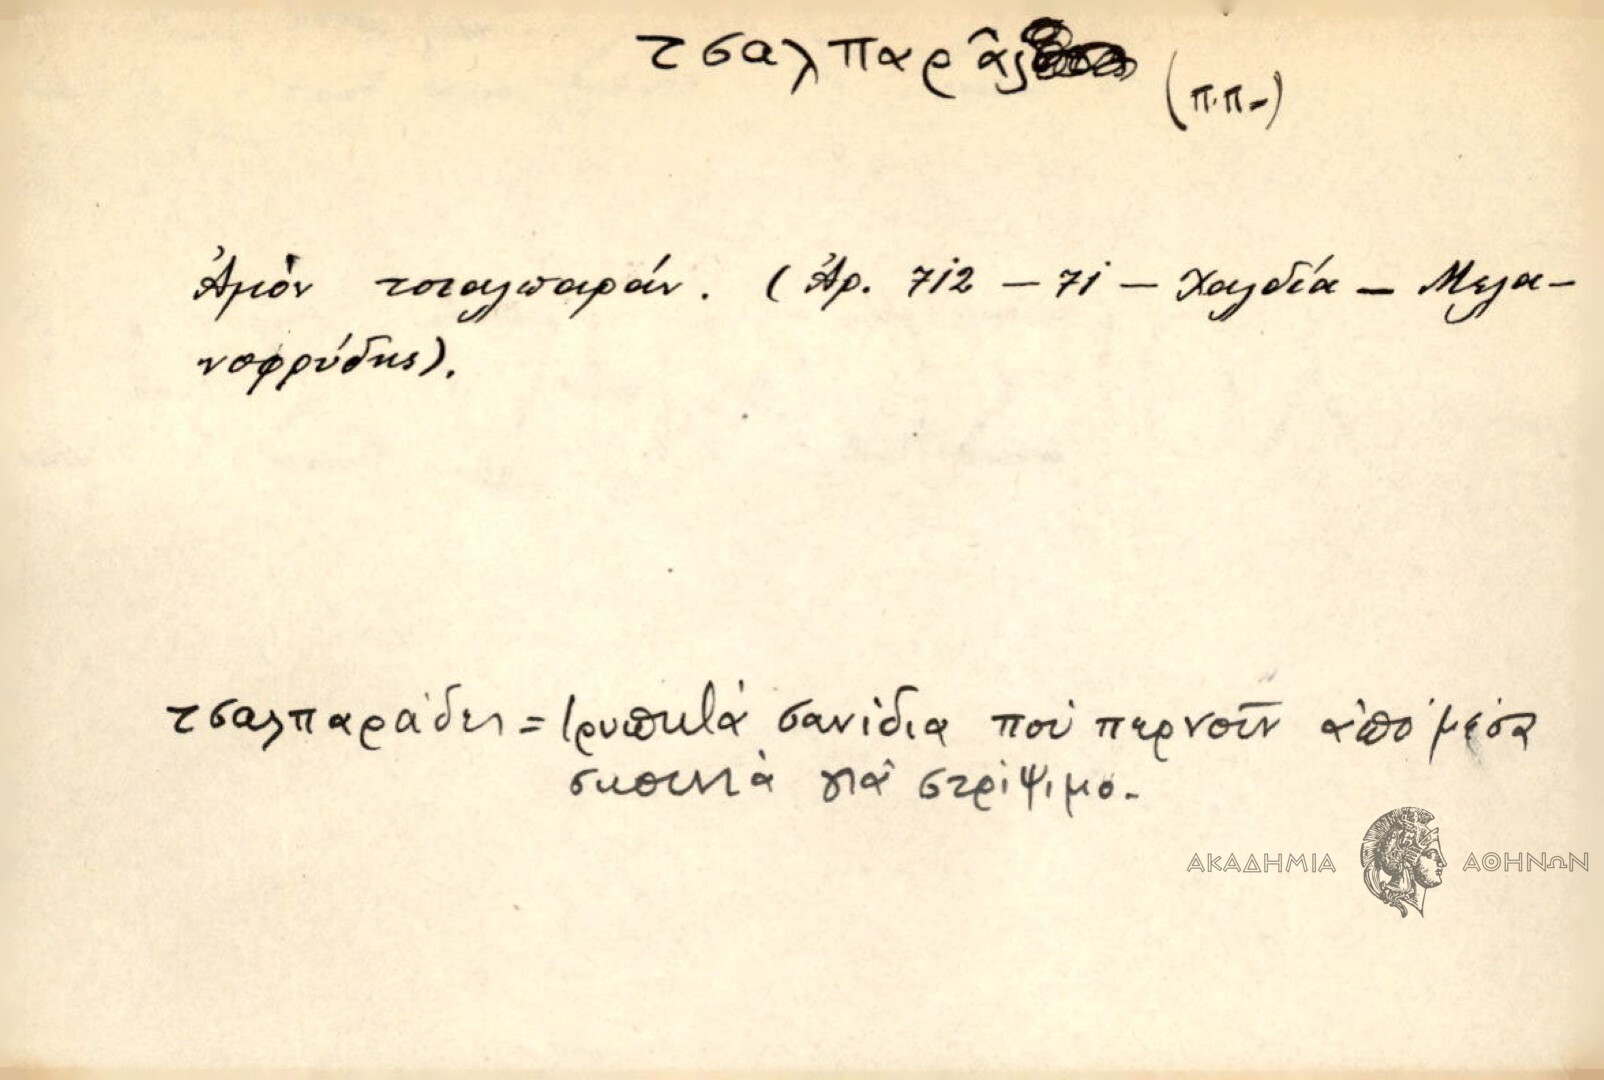 τσαλπαρᾶς (π.π.)
Ἀμὸν τσαλπαράν. (Ἀρ. 712 – 71 – Χαλδία – Μελα-
νοφρύδης).
τσαλπαράδες = τρυπητὰ σανίδια ποὺ περνοῦν ἀπὸ μέσα
σκοινιὰ γιὰ στρίψιμο.
ΑΚΑΔΗΜΙΑ ΑΘΗΝΩΝ